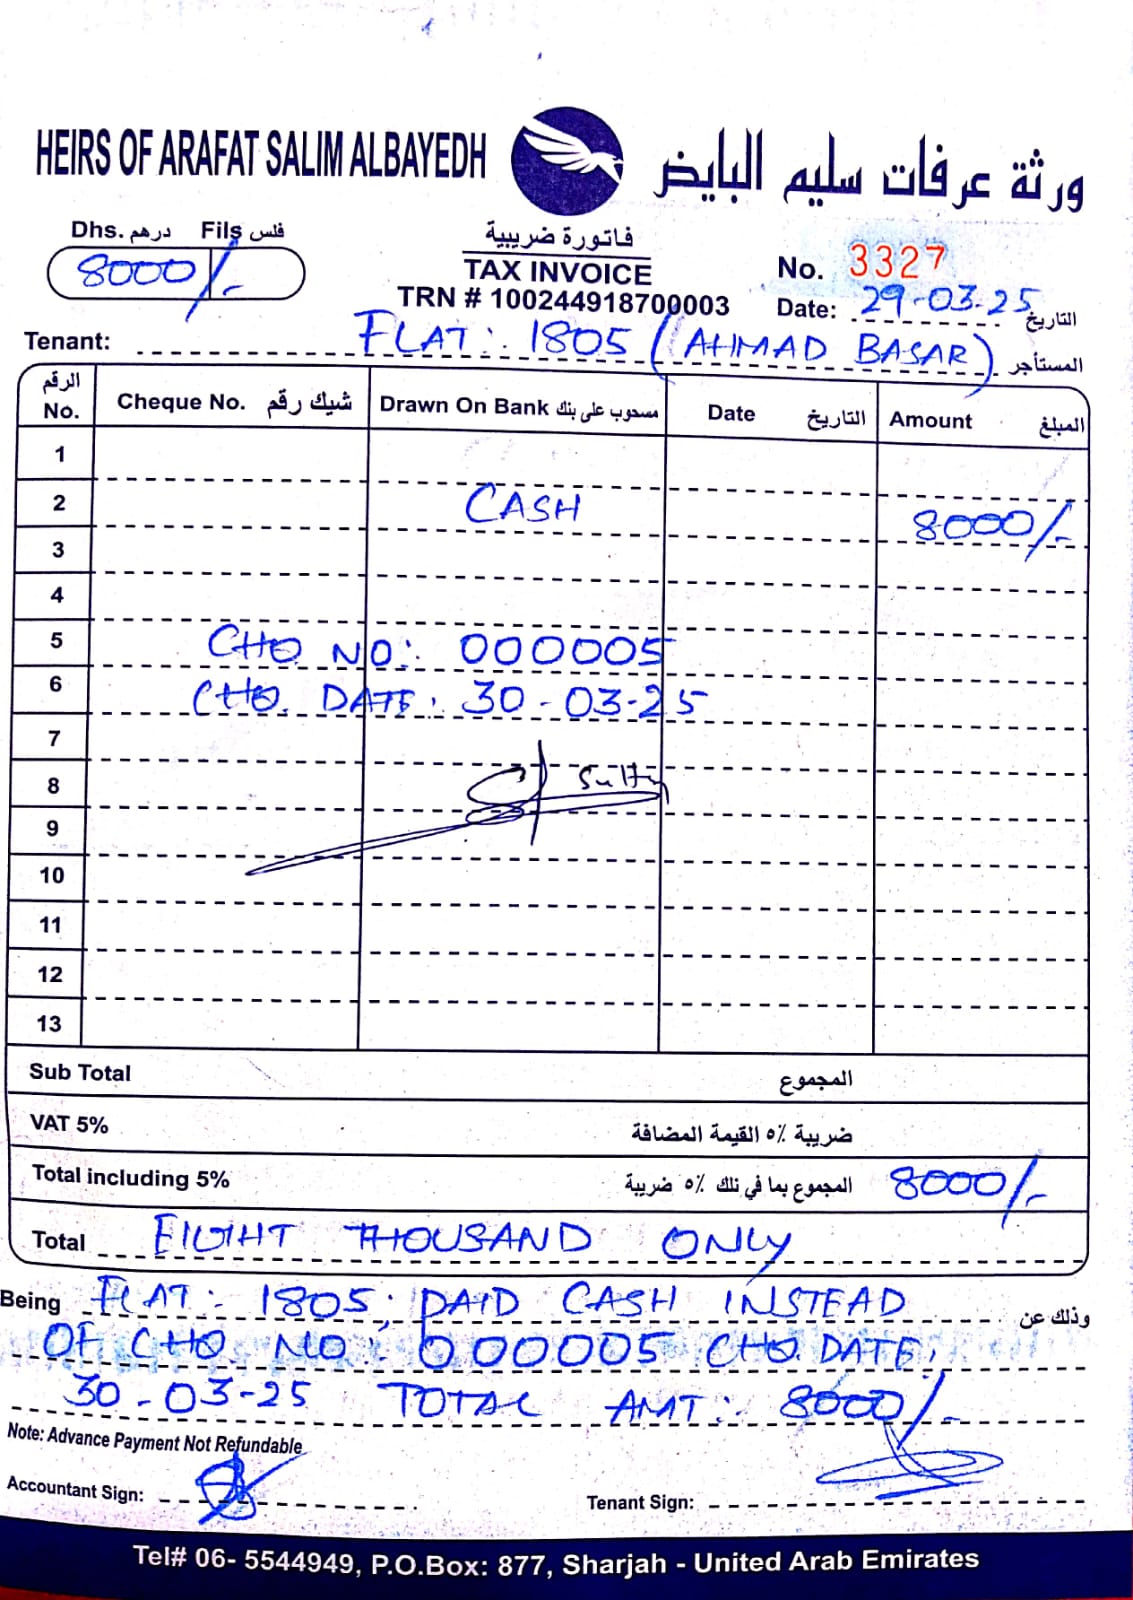 HEIRS OF ARAFAT SALIM ALBAYEDH
ورثة عرفات سليم البايض
Dhs. درهم Fils فلس
8000/-
فاتورة ضريبية
TAX INVOICE
TRN # 100244918700003
No. 3327
Date: 29-03-25 التاريخ
Tenant: FLAT: 1805 (AHMAD BASAR) المستأجر
الرقم No. Cheque No. شيك رقم Drawn On Bank مسحوب على بنك Date التاريخ Amount المبلغ
1
2 CASH 8000/-
3
4
5 CHQ NO: 000005
6 CHQ. DATE: 30-03-25
7
8
9
10
11
12
13
Sub Total المجموع
VAT 5% ضريبة ٥٪ القيمة المضافة
Total including 5% المجموع بما في ذلك ٥٪ ضريبة 8000/-
Total EIGHT THOUSAND ONLY
Being FLAT: 1805. PAID CASH INSTEAD وذلك عن
OF CHQ NO: 000005 CHQ. DATE:
30-03-25 TOTAL AMT: 8000/-
Note: Advance Payment Not Refundable
Accountant Sign:
Tenant Sign:
Tel# 06- 5544949, P.O.Box: 877, Sharjah - United Arab Emirates